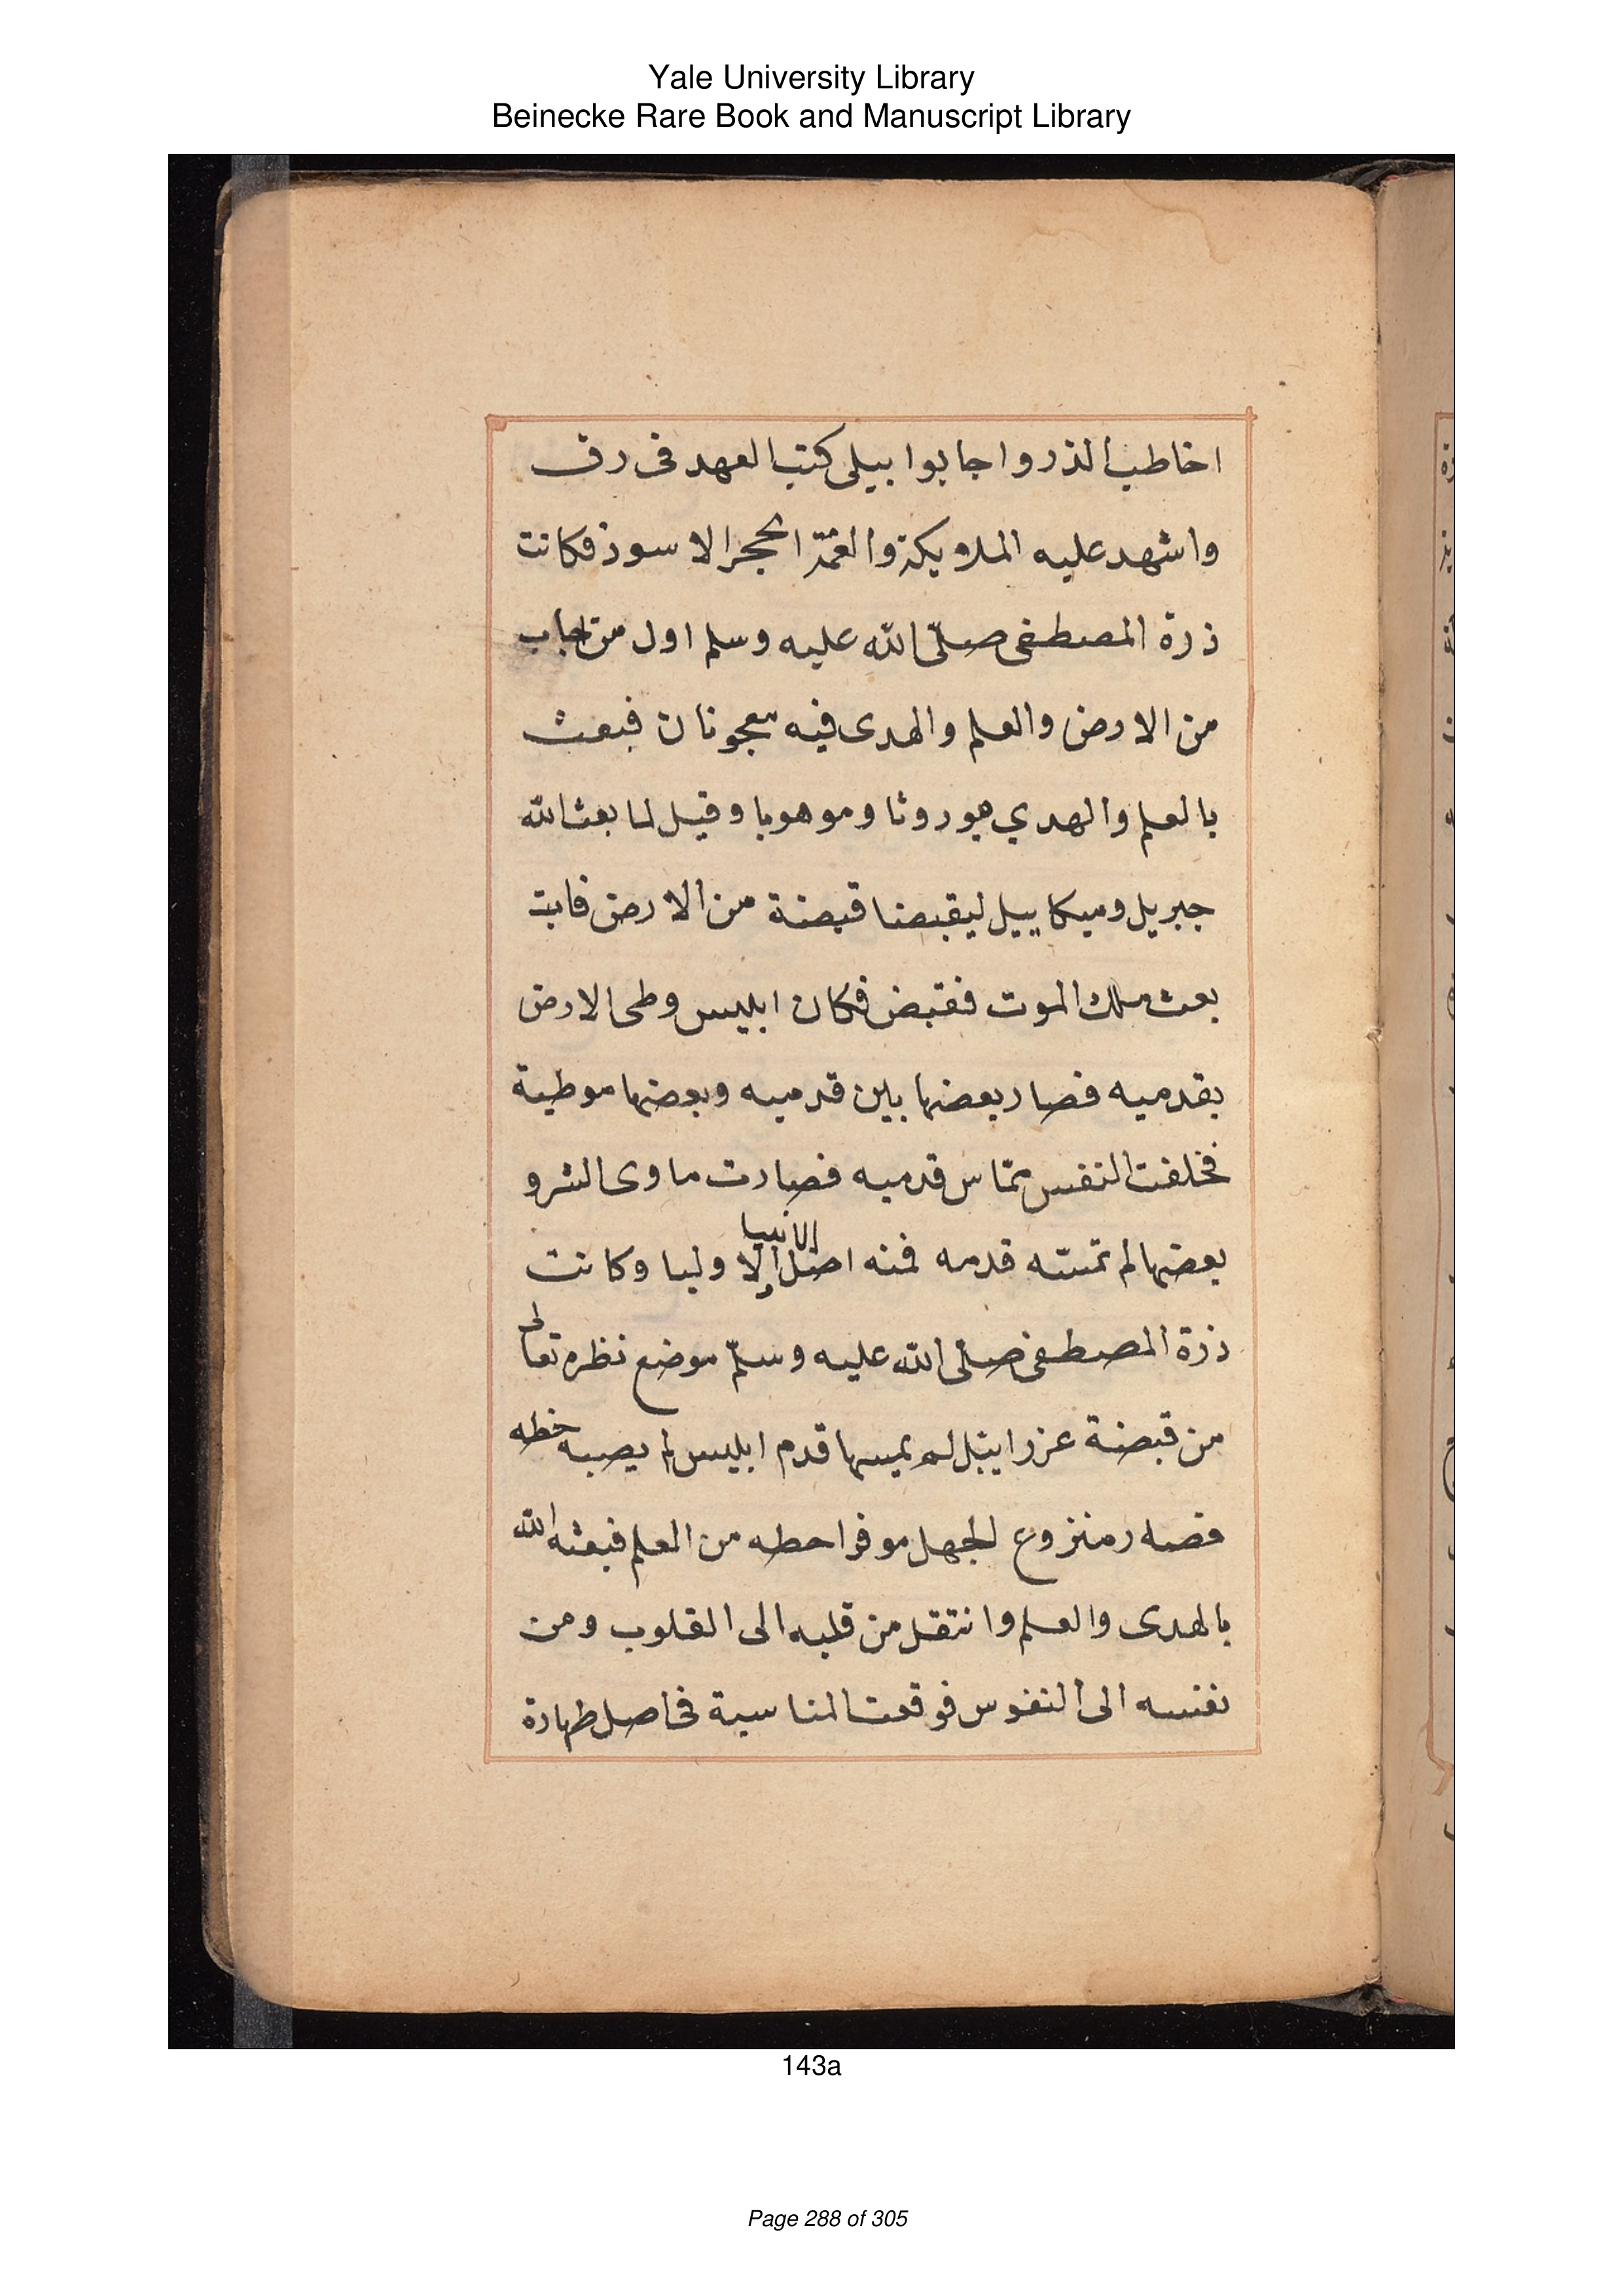 Yale University Library
Beinecke Rare Book and Manuscript Library
اخاطب الذر واجابوا ببلى كتب العهد فى رق
واشهد عليه الملايكة والقمة الحجر الاسود فكانت
ذرة المصطفى صلّى الله عليه وسلم اول من اجاب
من الارض والعلم والهدى فيه معجونان فبعث
بالعلم والهدي موروثا وموهوبا وقيل لما بعث الله
جبريل وميكاييل ليقبضا قبضة من الارض فابت
بعث ملك الموت فقبض فكان ابليس وطى الارض
بقدميه فصار بعضها بين قدميه وبعضها موطية
فخلفت النفس ممّا س قدميه فصارت ماوى الشر و
بعضها لم تمسّه قدمه فمنه اصل الانبيا والاوليا وكانت
ذرة المصطفى صلّى الله عليه وسلّم موضع نظره تعالى
من قبضة عزراييل لم يمسها قدم ابليس لم يصبه خطه
فصار منزوع الجهل موفرا حطه من العلم فبعثه الله
بالهدى والعلم وانتقل من قلبه الى القلوب ومن
نفسه الى النفوس فوقعت المناسبة فى اصل طهارة
143a
Page 288 of 305